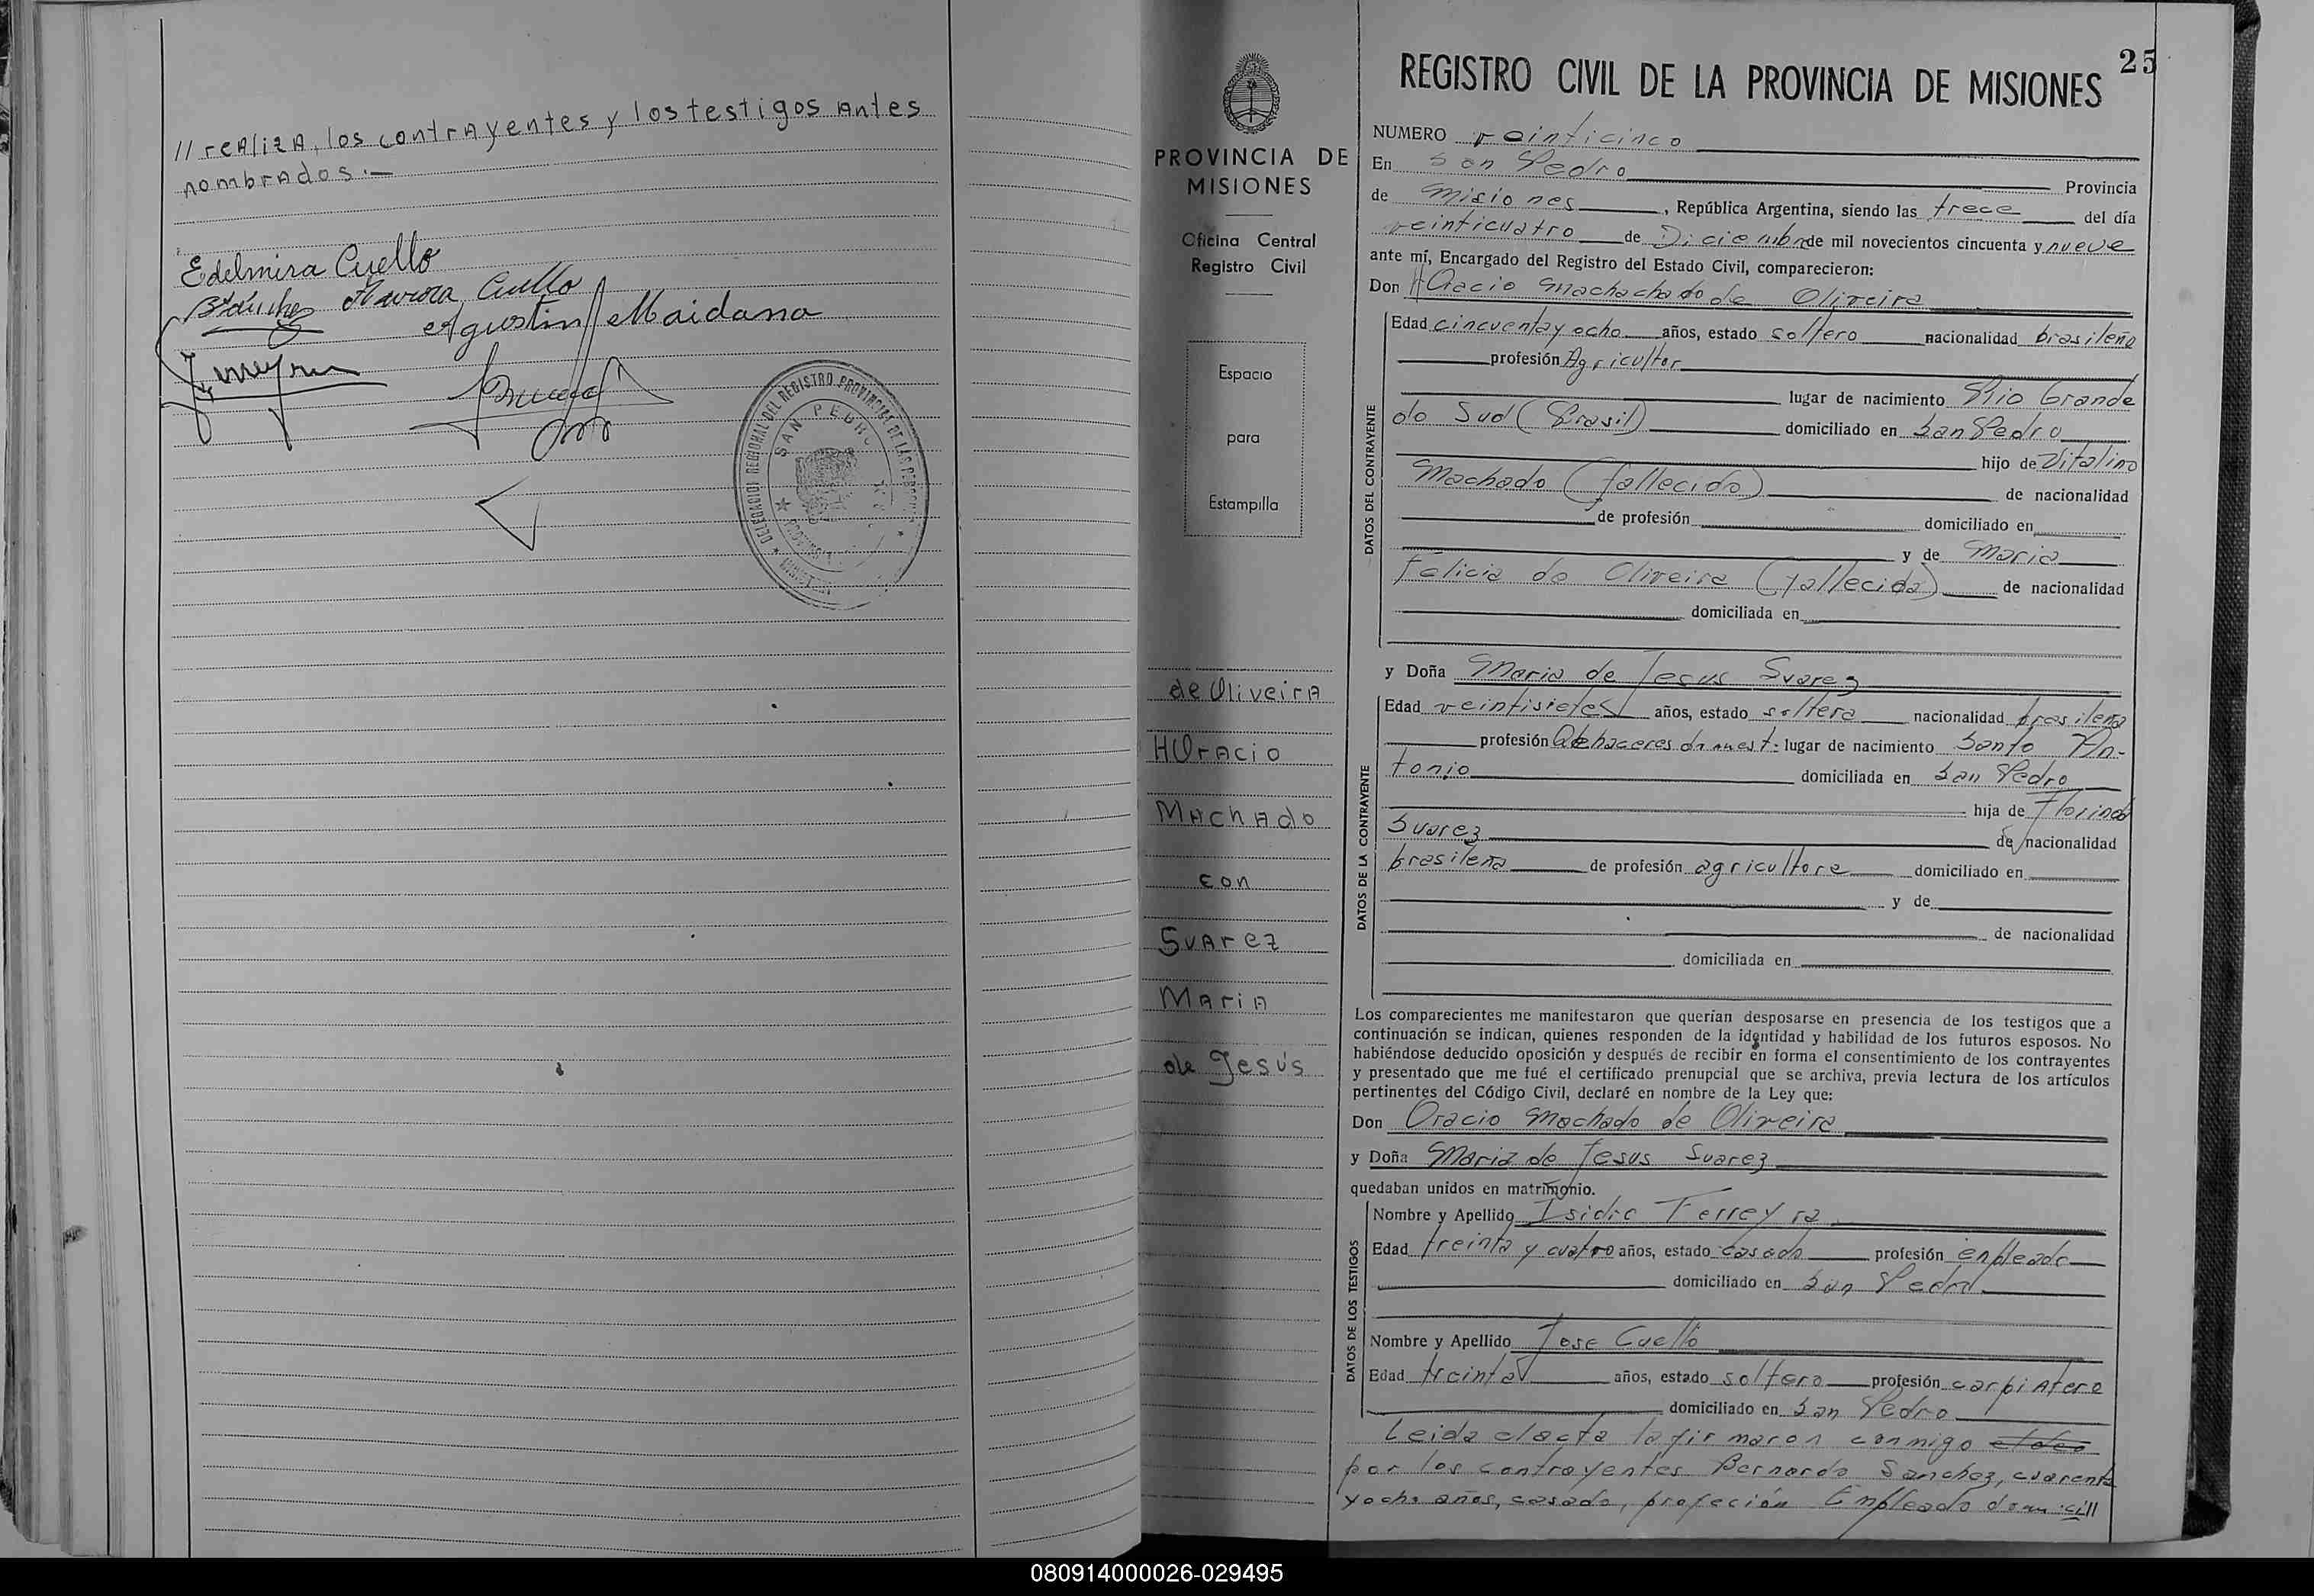 // reAlizA, los contrAyentes y los testigos Antes
nombrAdos.—
Edelmira Cuello
BSánchez Aurora Cuello
Agustin Maidana
DELEGACION REGIONAL DEL REGISTRO PROVINCIAL DE LAS PERSONAS
SAN PEDRO
25
REGISTRO CIVIL DE LA PROVINCIA DE MISIONES
PROVINCIA DE
MISIONES
Oficina Central
Registro Civil
Espacio
para
Estampilla
de OliveirA
HOrAcio
MAchAdo
con
SuArez
MAriA
de Jesús
NUMERO veinticinco
En San Pedro Provincia
de Misiones, República Argentina, siendo las trece del día
veinticuatro de Diciembre de mil novecientos cincuenta y nueve
ante mí, Encargado del Registro del Estado Civil, comparecieron:
Don HOracio Machachado de Oliveira
DATOS DEL CONTRAYENTE
Edad cincuenta y ocho años, estado soltero nacionalidad brasileña
profesión Agricultor
lugar de nacimiento Rio Grande
do Sud (Brasil) domiciliado en San Pedro
hijo de Vitalino
Machado (fallecido) de nacionalidad
de profesión domiciliado en
y de Maria
Felicia de Oliveira (fallecida) de nacionalidad
domiciliada en
y Doña Maria de Jesus Suarez
DATOS DE LA CONTRAYENTE
Edad veintisiete años, estado soltera nacionalidad brasileña
profesión Qehaceres domest. lugar de nacimiento Santo An-
tonio domiciliada en San Pedro
hija de Florinda
Suarez de nacionalidad
brasileña de profesión agricultora domiciliado en
y de
de nacionalidad
domiciliada en
Los comparecientes me manifestaron que querían desposarse en presencia de los testigos que a
continuación se indican, quienes responden de la identidad y habilidad de los futuros esposos. No
habiéndose deducido oposición y después de recibir en forma el consentimiento de los contrayentes
y presentado que me fué el certificado prenupcial que se archiva, previa lectura de los artículos
pertinentes del Código Civil, declaré en nombre de la Ley que:
Don Oracio Machado de Oliveira
y Doña Maria de Jesus Suarez
quedaban unidos en matrimonio.
DATOS DE LOS TESTIGOS
Nombre y Apellido Isidro Ferreyra
Edad treinta y cuatro años, estado casado profesión enpleado
domiciliado en San Pedro
Nombre y Apellido Jose Cuello
Edad treinta años, estado soltero profesión carpintero
domiciliado en San Pedro
Leida elacta la firmaron conmigo
por los contrayentes Bernardo Sanchez, cuarenta
y ocho años, casado, profeción Empleado domicil//
080914000026-029495